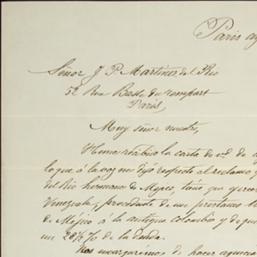 Paris
Señor J. P. Martinez del Rio
52 Rue Basse du rempart
Paris,
Muy señor nuestro,
Hemos recibido la carta de vd. de
lo que á la voz nos dijo respecto al reclamo
del Rio hermanos de Mejico,
Venezuela, procedente de un prestamo
de Méjico á la antigua Colombia y de
un 28½% de la deuda.
Nos encargariamos de hacer